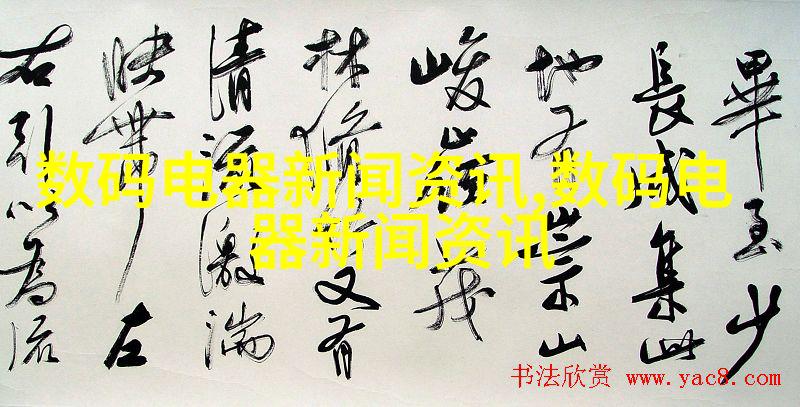 畢至少
長咸集此
地有崇山
峻嶺茂
林脩竹又有
清流激湍
映帶左
右引以為流
数码电器新闻资讯,数码电
器新闻资讯
书法欣赏 www.yac8.com